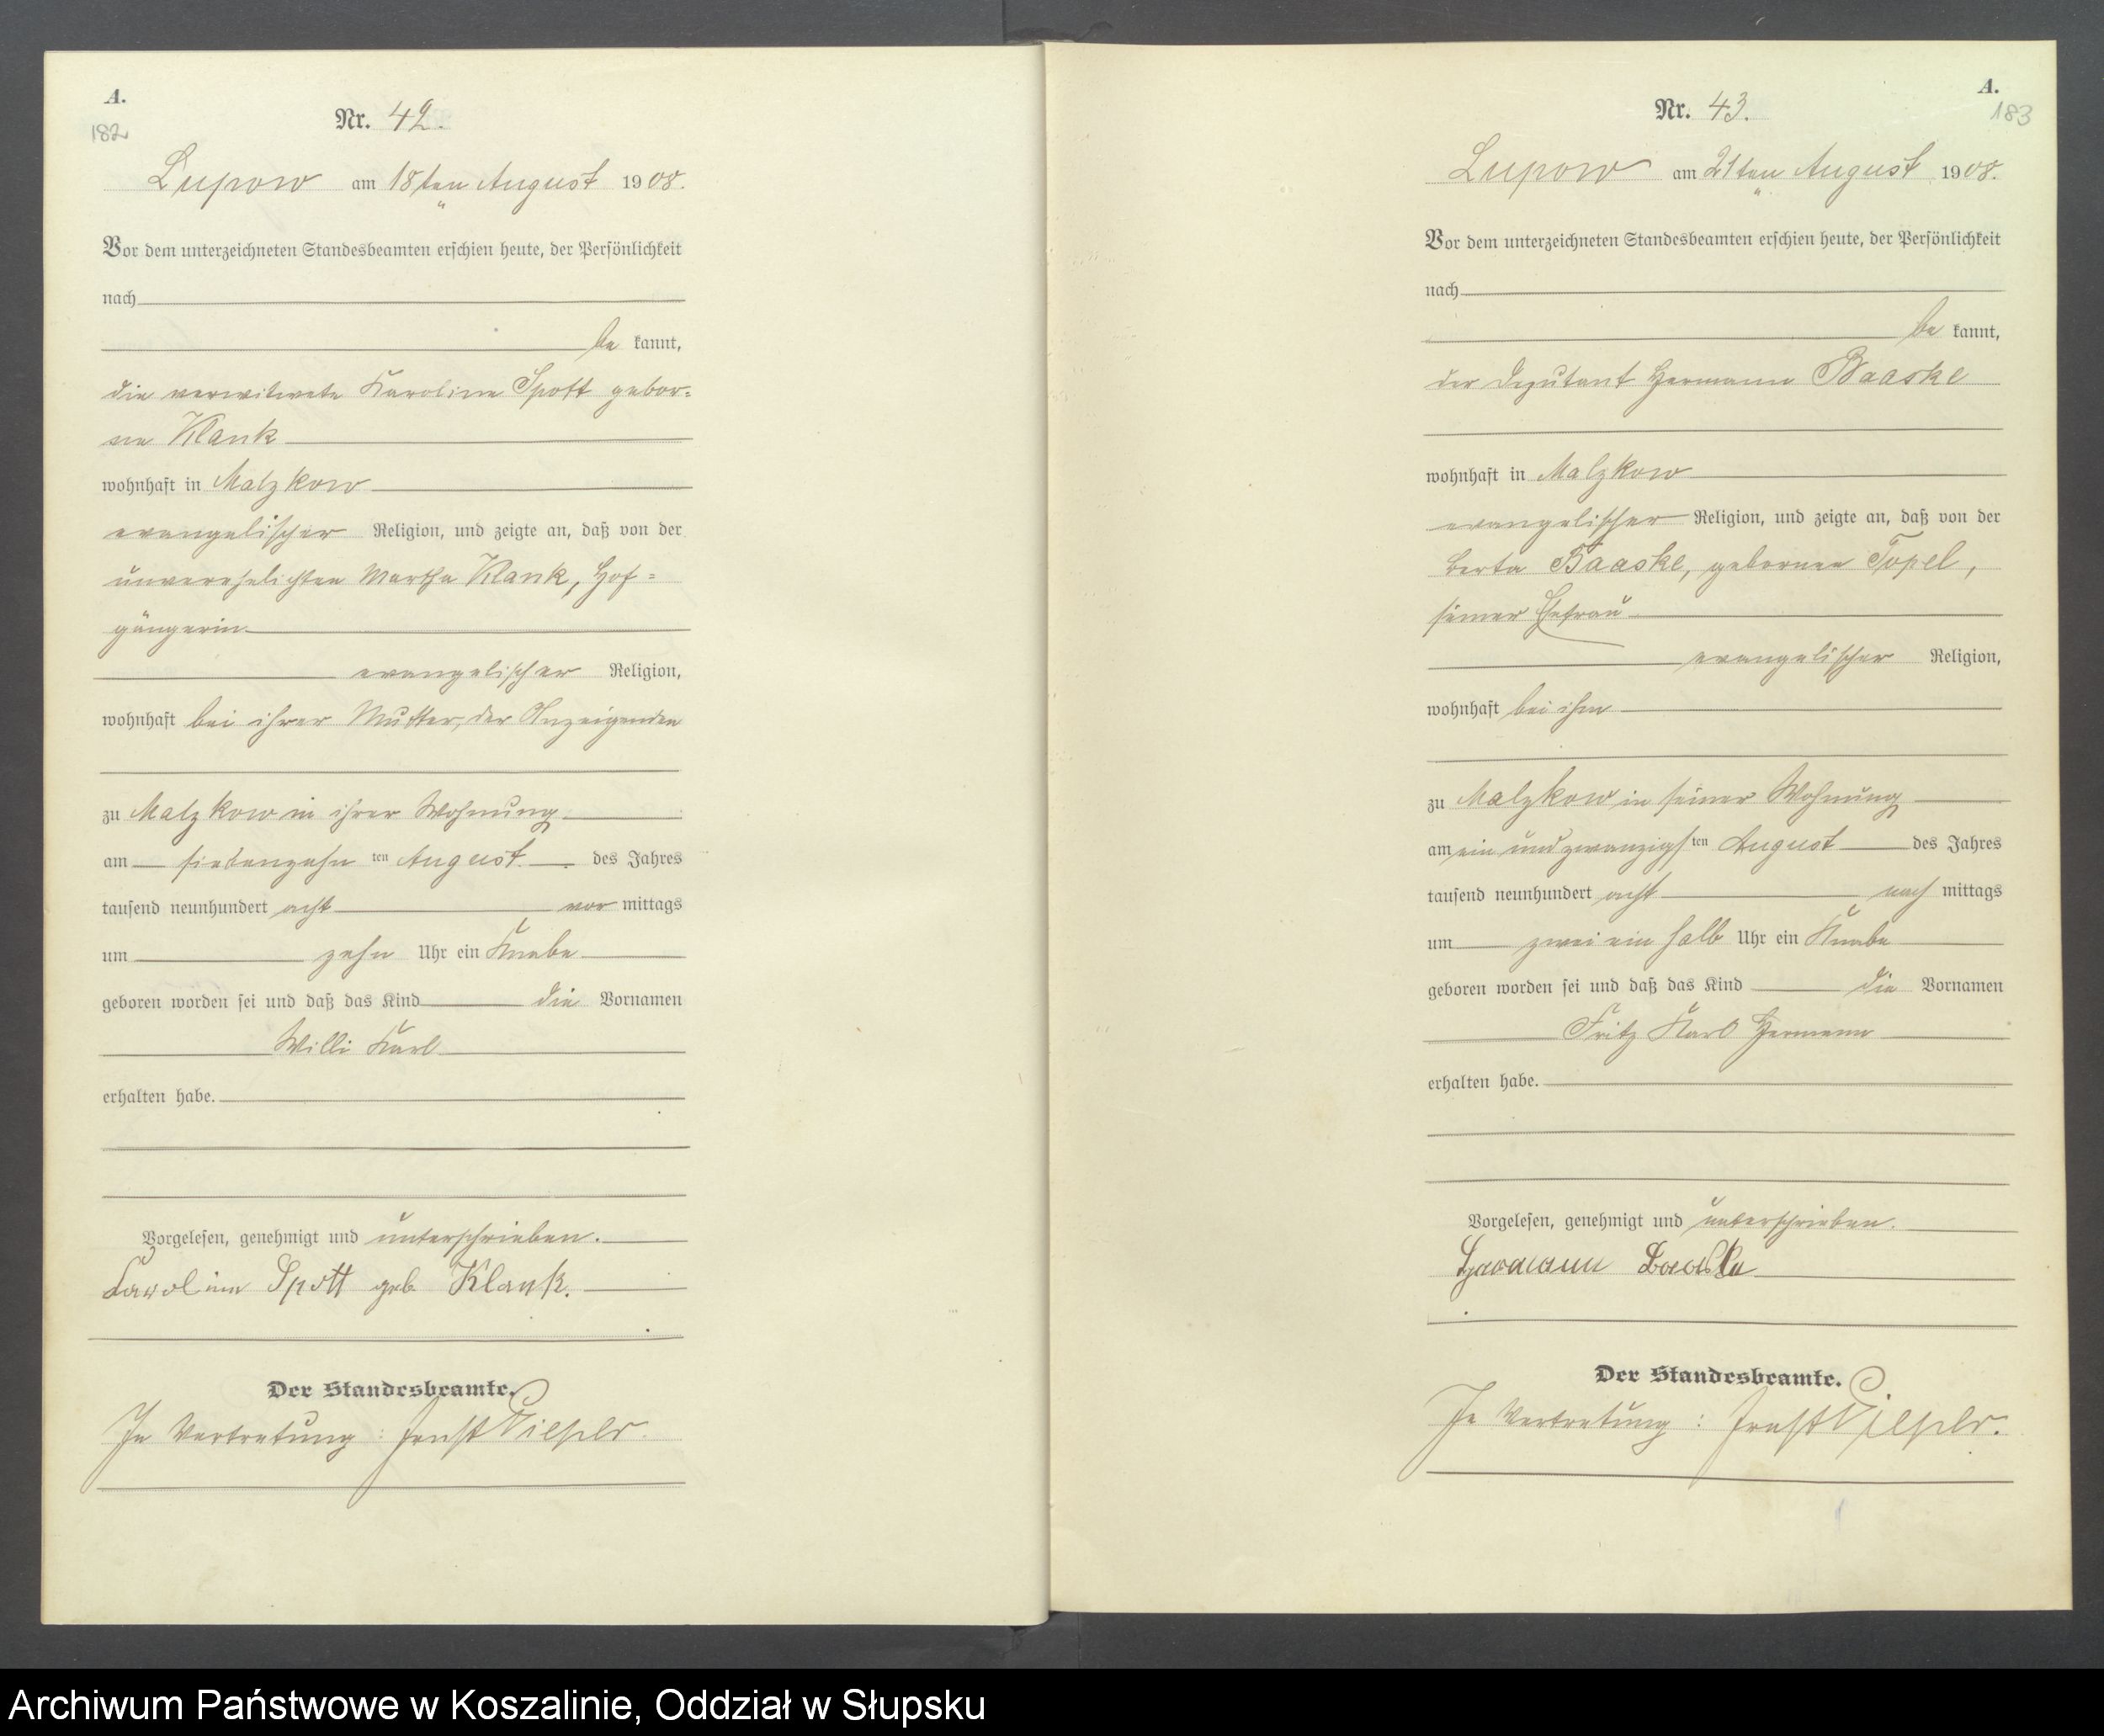 A.
182
Nr. 42.
Lupow am 18ten August 1908.
Vor dem unterzeichneten Standesbeamten erschien heute, der Persönlichkeit
nach
be kannt,
die verwitwete Karoline Spott gebor=
ne Klank
wohnhaft in Malzkow
evangelischer Religion, und zeigte an, daß von der
unverehelichten Martha Klank, Hof=
gängerin
evangelischer Religion,
wohnhaft bei ihrer Mutter, der Anzeigenden
zu Malzkow in ihrer Wohnung
am siebenzehn ten August des Jahres
tausend neunhundert acht vor mittags
um zehn Uhr ein Knabe
geboren worden sei und daß das Kind die Vornamen
Willi Karl
erhalten habe.
Vorgelesen, genehmigt und unterschrieben.
Karoline Spott geb. Klank.
Der Standesbeamte.
In Vertretung: Ernst Piepler.
A.
183
Nr. 43.
Lupow am 21ten August 1908.
Vor dem unterzeichneten Standesbeamten erschien heute, der Persönlichkeit
nach
be kannt,
der Deputant Hermann Baaske
wohnhaft in Malzkow
evangelischer Religion, und zeigte an, daß von der
Berta Baaske, gebornen Topel,
seiner Ehefrau
evangelischer Religion,
wohnhaft bei ihm
zu Malzkow in seiner Wohnung
am ein und zwanzigsten August des Jahres
tausend neunhundert acht nach mittags
um zwei ein halb Uhr ein Knabe
geboren worden sei und daß das Kind die Vornamen
Fritz Karl Hermann
erhalten habe.
Vorgelesen, genehmigt und unterschrieben.
Hermann Baaske
Der Standesbeamte.
In Vertretung: Ernst Piepler.
Archiwum Państwowe w Koszalinie, Oddział w Słupsku